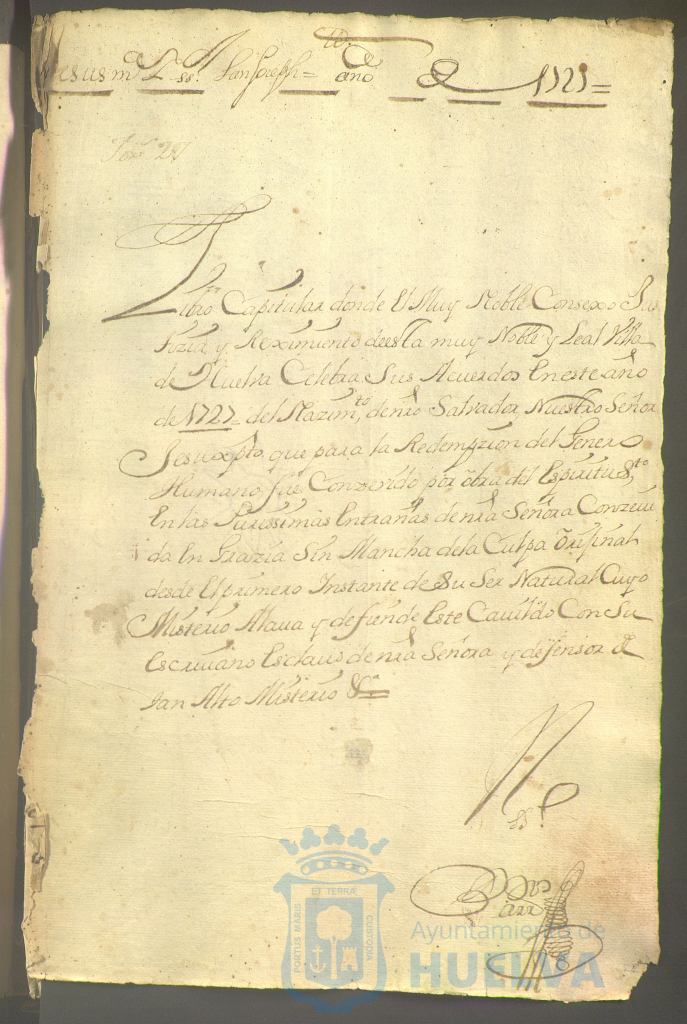 Jesus ma. Y ss.r San Joseph = año de 1727 =
Libro Capitular donde El Muy Noble Consexo Jus
tizia, y Reximiento deesta muy Noble y Leal Villa
de Huelva Celebra Sus Acuerdos Eneste año
de 1727 = del Nazim.to de nro Salvador, Nuestro Señor
Jesuxpto, que para la Redempzion del Genero
Humano, fue Conzevido por obra del Espiritu S.to
En las Purissimas Entrañas de nra Señora Conzeui
da En Grazia Sin Mancha dela Culpa Original
desde El primero Instante de Su Ser Natural Cuyo
Misterio Alaua y defiende Este Cauildo Con Su
Escriuano Esclauo de nra Señora y defensor de
tan Alto Misterio &.a =
PORTUS MARIS ET TERRAE CUSTODIA
Ayuntamiento de
HUELVA